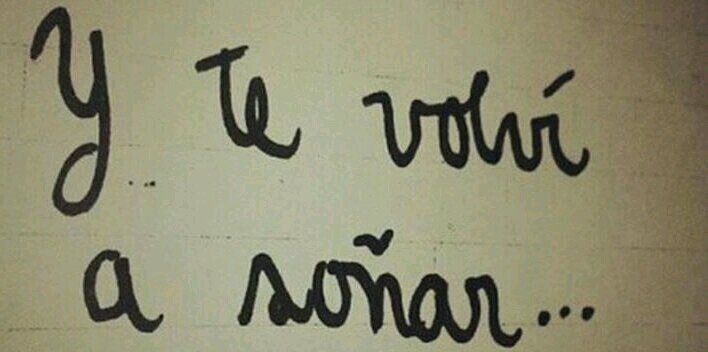 Y te volví
a soñar...